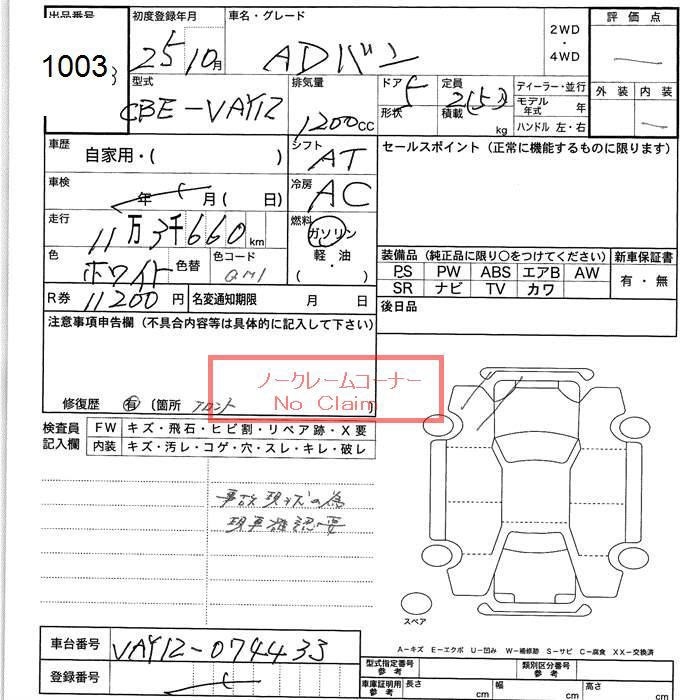 出品番号
1003
初度登録年月
25 10月
車名・グレード
ADバン
2WD
・
4WD
評価点
外装 内装
型式
CBE-VAY12
排気量
1200cc
ドア 5
形状
定員 2(5)
積載 kg
ディーラー・並行
モデル年式 年
ハンドル 左・右
車歴
自家用・( )
シフト
AT
車検
年 月( 日)
冷房
AC
走行
11万3千660km
燃料
ガソリン
軽・油
・
( )
色
ホワイト
色替
色コード
QM1
R券 11200円
名変通知期限 月 日
セールスポイント(正常に機能するものに限ります)
装備品(純正品に限り〇をつけてください) 新車保証書
PS PW ABS エアB AW
SR ナビ TV カワ
有・無
後日品
注意事項申告欄(不具合内容等は具体的に記入して下さい)
ノークレームコーナー
No Claim
修復歴 有 〔箇所 フロント
検査員
記入欄
FW キズ・飛石・ヒビ割・リペア跡・X要
内装 キズ・汚レ・コゲ・穴・スレ・キレ・破レ
事故現状の為
現車確認要
スペア
A-キズ E-エクボ U-凹み W-補修跡 S-サビ C-腐食 XX-交換済
車台番号 VAY12-074433
登録番号
型式指定番号
参考
類別区分番号
参考
車庫証明用
参考
長さ cm 幅 cm 高さ cm